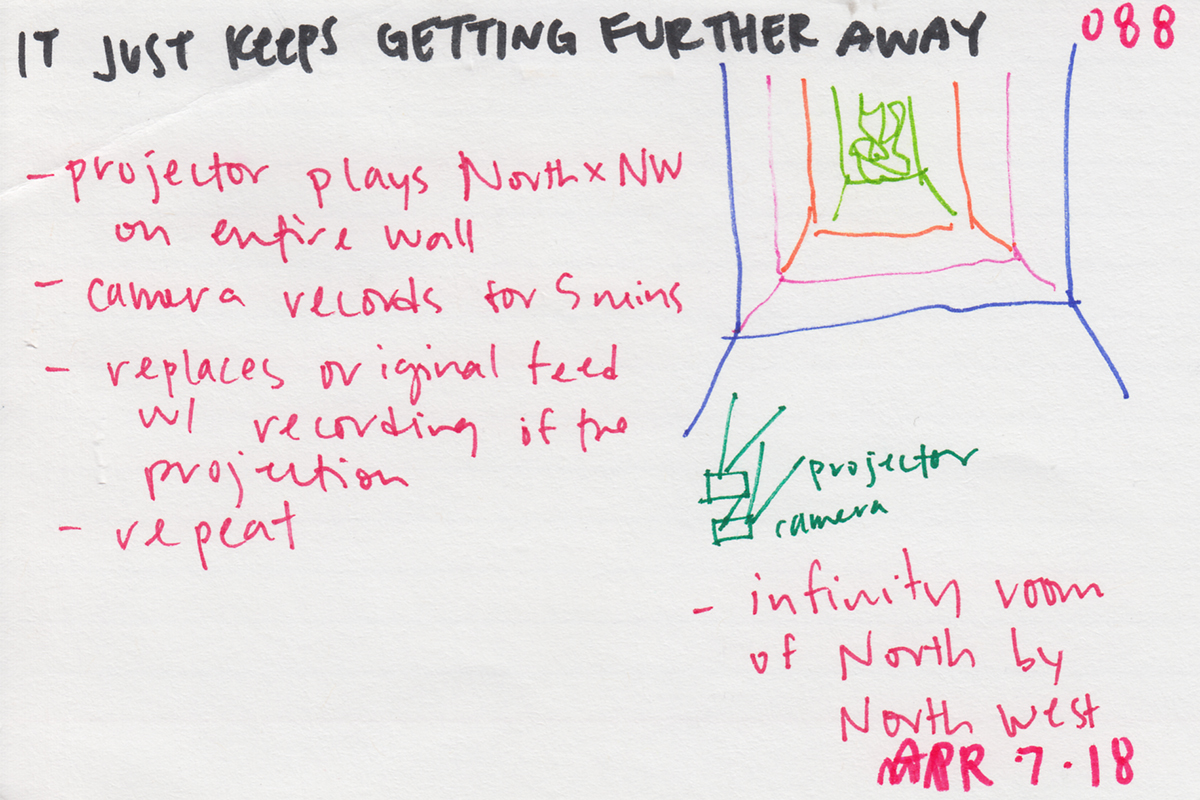 IT JUST KEEPS GETTING FURTHER AWAY
088
- projector plays North x NW
on entire wall
- camera records for 5 mins
- replaces original feed
w/ recording of the
projection
- repeat
projector
camera
- infinity room
of North by
North West
APR · 7 · 18